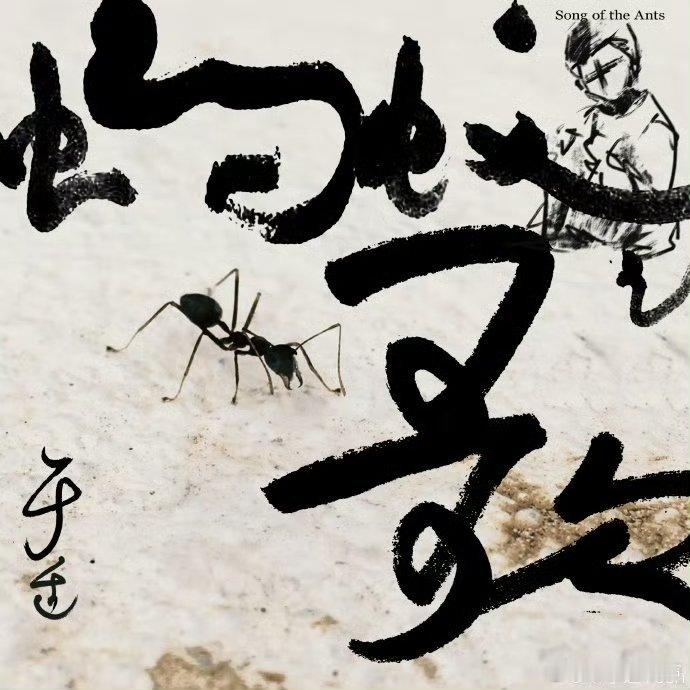 Song of the Ants
蚂蚁
歌
于